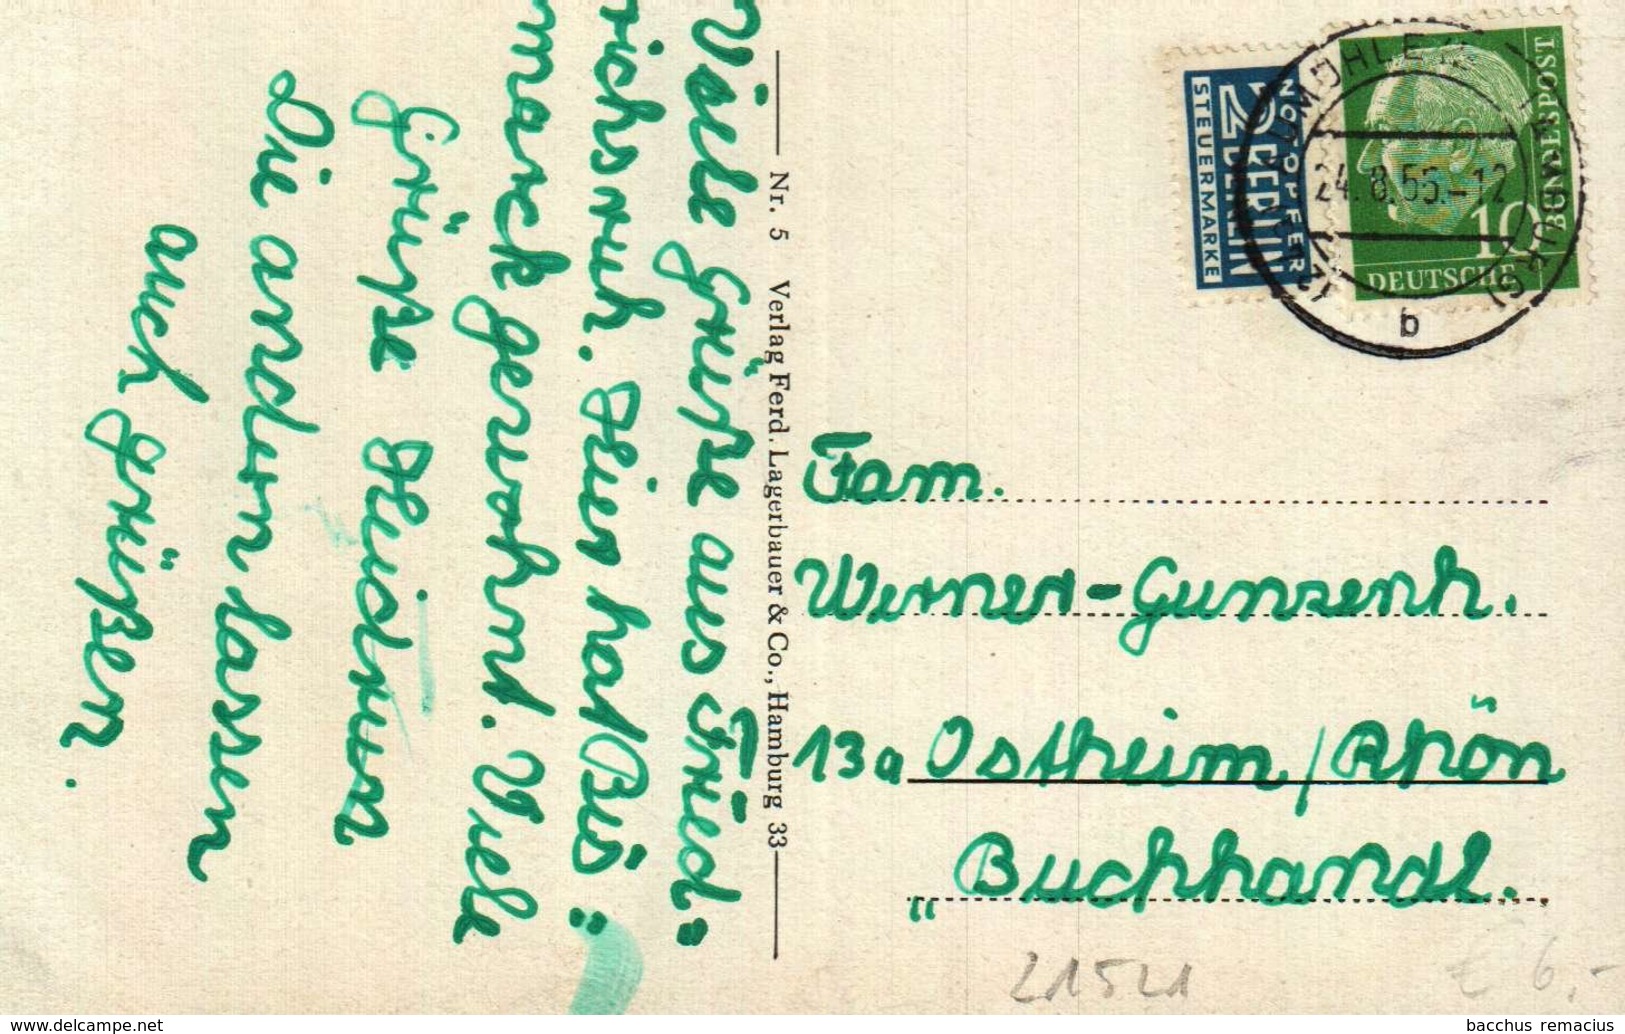 Viele Grüße aus Fried=
richsruh. Hier hat Bis=
marck gewohnt. Viele
Grüße Heidrun
Die andern lassen
auch grüßen.
Nr. 5 Verlag Ferd. Lagerbauer & Co., Hamburg 33
NOTOPFER
2 BERLIN
STEUERMARKE
DEUTSCHE
BUNDESPOST
10
24.8.56.-12
b
Fam.
Werner-Gunzenh.
13a Ostheim/Rhön
Buchhandl.
21521
€ 6,-
delcampe.net
bacchus_remacius